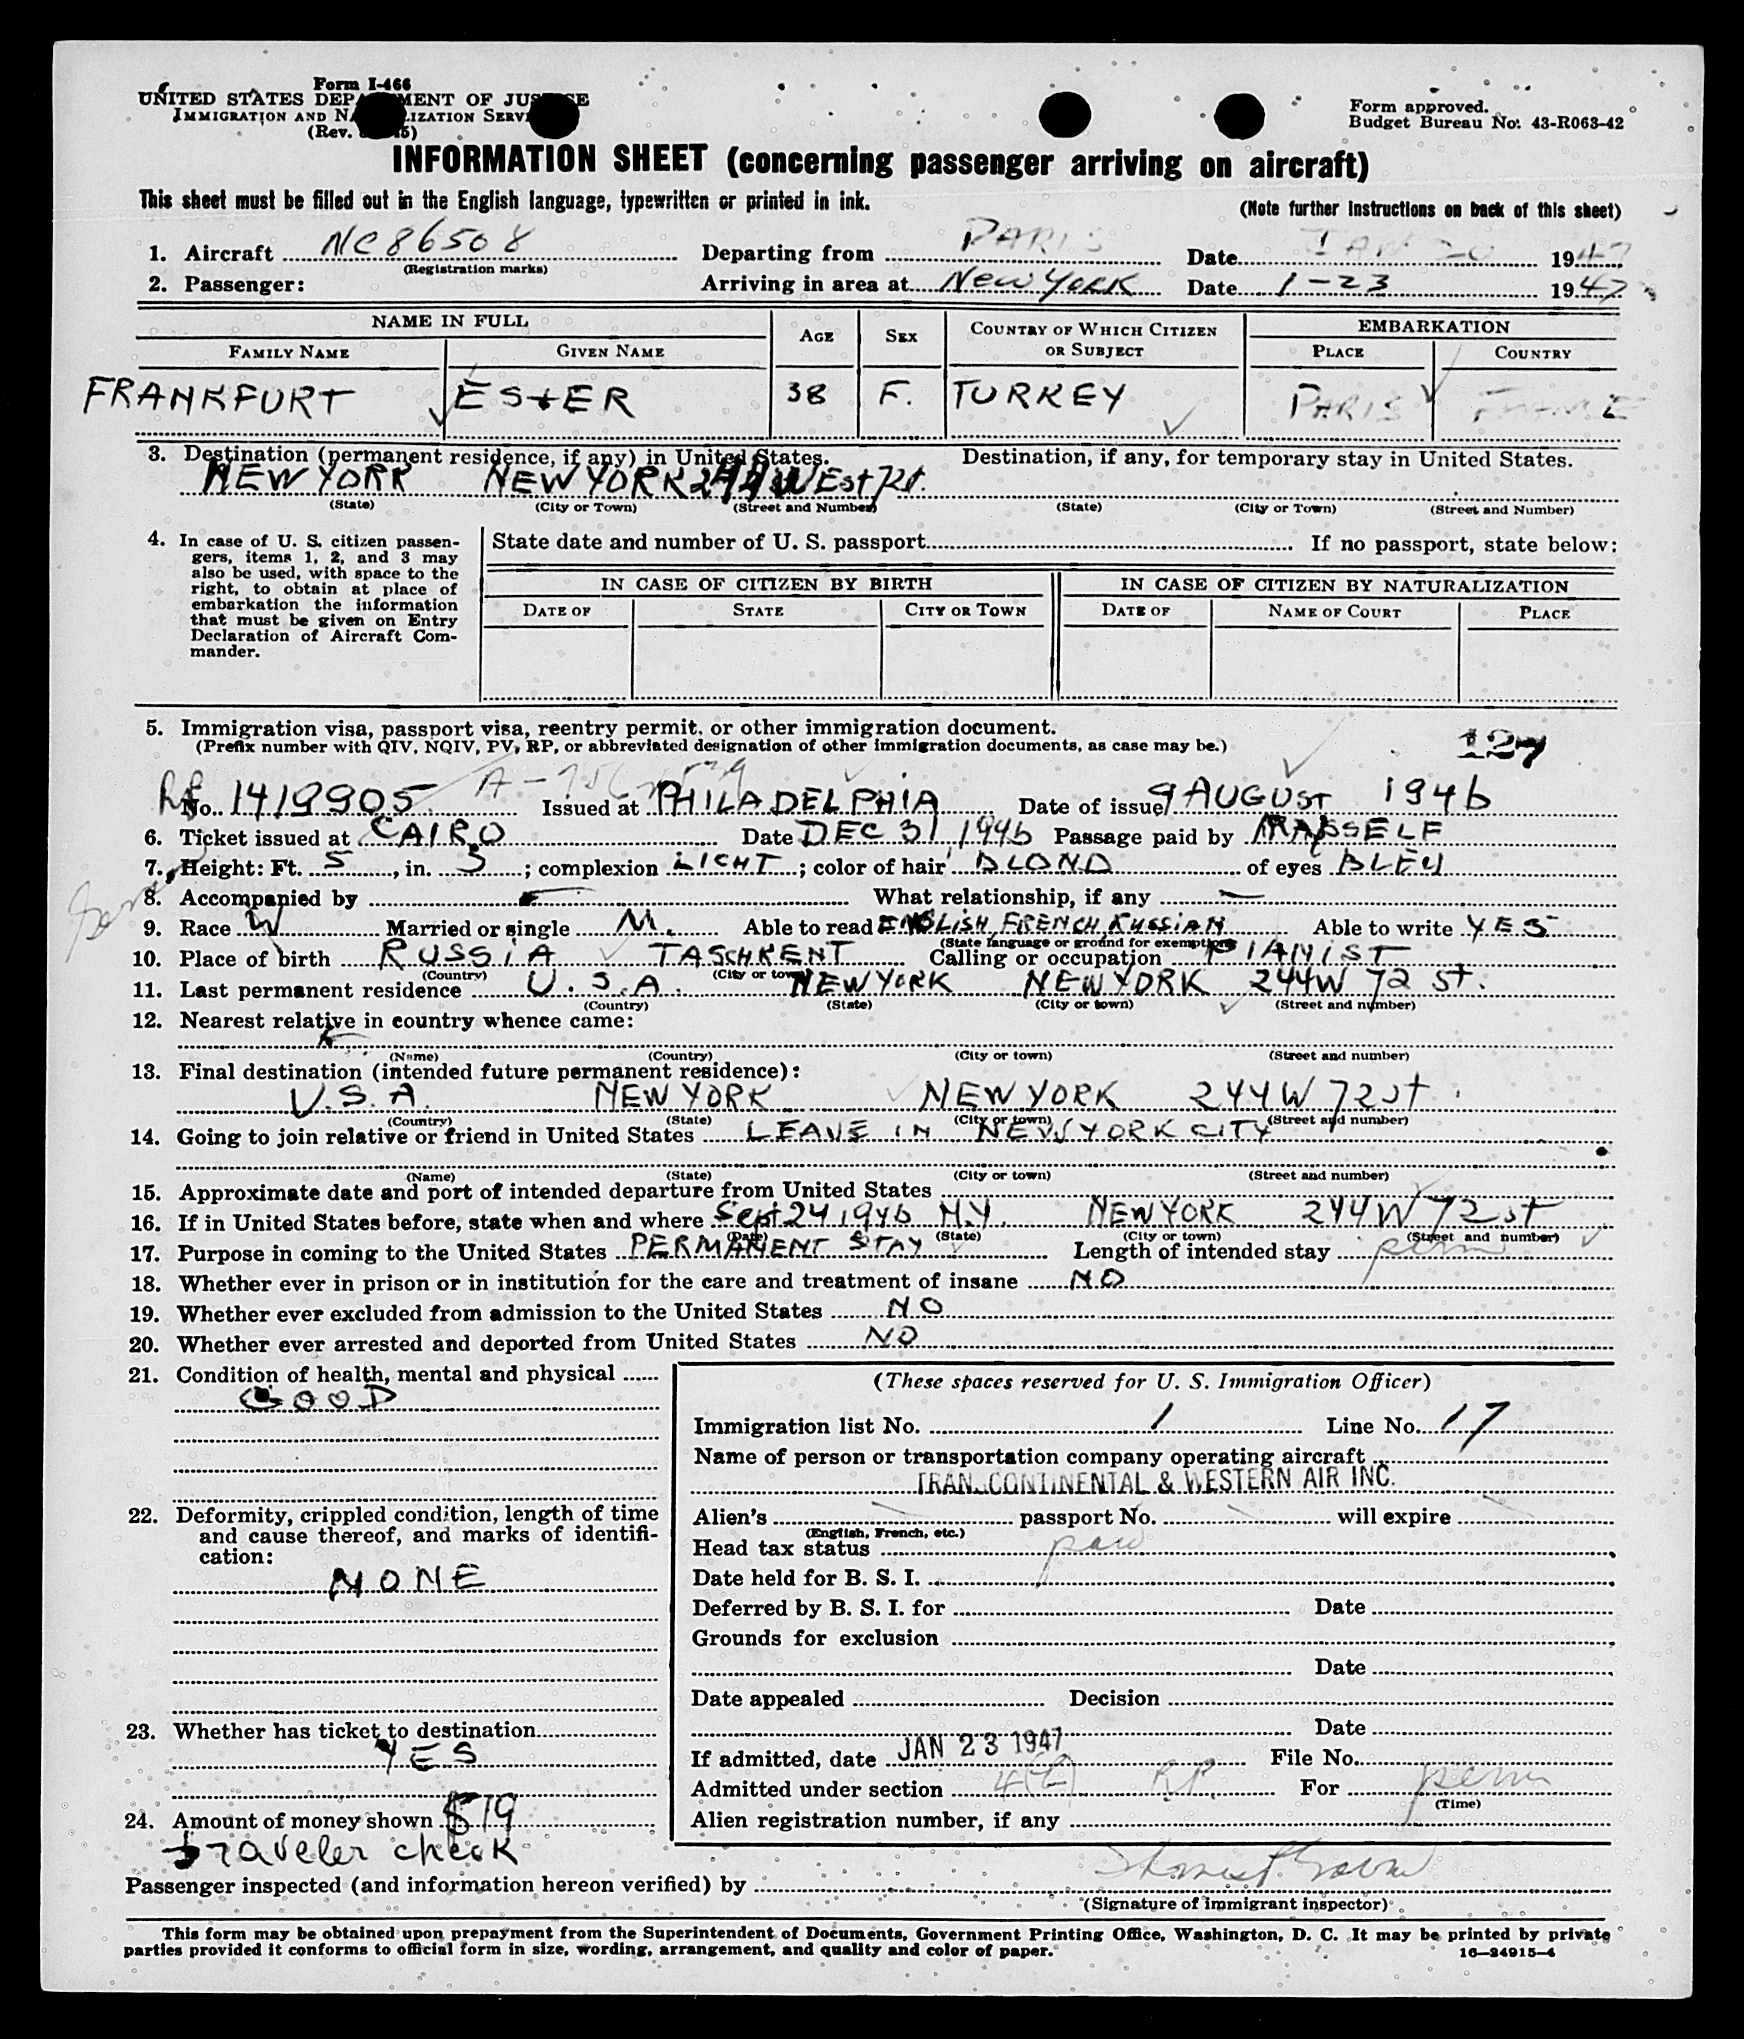 Form I-466
UNITED STATES DEPARTMENT OF JUSTICE
IMMIGRATION AND NATURALIZATION SERVICE
(Rev.
Form approved.
Budget Bureau No. 43-R063-42
INFORMATION SHEET (concerning passenger arriving on aircraft)
This sheet must be filled out in the English language, typewritten or printed in ink.
(Note further instructions on back of this sheet)
1. Aircraft NC86508 Departing from PARIS Date JAN 20 1947
(Registration marks)
2. Passenger: Arriving in area at New York Date 1-23 1947
NAME IN FULL
FAMILY NAME GIVEN NAME AGE SEX COUNTRY OF WHICH CITIZEN OR SUBJECT EMBARKATION PLACE COUNTRY
FRANKFURT ESTER 38 F. TURKEY PARIS FRANCE
3. Destination (permanent residence, if any) in United States. Destination, if any, for temporary stay in United States.
NEW YORK NEW YORK 244 WEst
(State) (City or Town) (Street and Number) (State) (City or Town) (Street and Number)
4. In case of U. S. citizen passengers, items 1, 2, and 3 may also be used, with space to the right, to obtain at place of embarkation the information that must be given on Entry Declaration of Aircraft Commander.
State date and number of U. S. passport If no passport, state below:
IN CASE OF CITIZEN BY BIRTH IN CASE OF CITIZEN BY NATURALIZATION
DATE OF STATE CITY OR TOWN DATE OF NAME OF COURT PLACE
5. Immigration visa, passport visa, reentry permit, or other immigration document.
(Prefix number with QIV, NQIV, PV, RP, or abbreviated designation of other immigration documents, as case may be.)
127
No. 1419905 Issued at PHILADELPHIA Date of issue 9 AUGUST 1946
6. Ticket issued at CAIRO Date DEC 31, 1946 Passage paid by MYSSELF
7. Height: Ft. 5, in. 3; complexion LICHT; color of hair BLOND of eyes BLEU
8. Accompanied by What relationship, if any —
9. Race W Married or single M. Able to read ENGLISH, FRENCH, RUSSIAN Able to write YES
(State language or ground for exemption)
10. Place of birth RUSSIA TASCHKENT Calling or occupation PIANIST
(Country) (City or town)
11. Last permanent residence U.S.A. NEW YORK NEW YORK 244W 72 St.
(Country) (State) (City or town) (Street and number)
12. Nearest relative in country whence came:
(Name) (Country) (City or town) (Street and number)
13. Final destination (intended future permanent residence):
U.S.A. NEW YORK NEW YORK 244W 72 St.
(Country) (State) (City or town) (Street and number)
14. Going to join relative or friend in United States LEAVE IN NEW YORK CITY
(Name) (State) (City or town) (Street and number)
15. Approximate date and port of intended departure from United States
16. If in United States before, state when and where Sept 24, 1946 N.Y. NEW YORK 244W 72 st
(Date) (State) (City or town) (Street and number)
17. Purpose in coming to the United States PERMANENT STAY Length of intended stay perm
18. Whether ever in prison or in institution for the care and treatment of insane NO
19. Whether ever excluded from admission to the United States NO
20. Whether ever arrested and deported from United States NO
21. Condition of health, mental and physical
GOOD
22. Deformity, crippled condition, length of time and cause thereof, and marks of identification:
NONE
23. Whether has ticket to destination
YES
24. Amount of money shown $79
traveler check
(These spaces reserved for U. S. Immigration Officer)
Immigration list No. 1 Line No. 17
Name of person or transportation company operating aircraft
TRANSCONTINENTAL & WESTERN AIR INC.
Alien's passport No. will expire
(English, French, etc.)
Head tax status paid
Date held for B. S. I.
Deferred by B. S. I. for Date
Grounds for exclusion
Date
Date appealed Decision
Date
If admitted, date JAN 23 1947 File No.
Admitted under section 4(b) RP For perm
(Time)
Alien registration number, if any
Passenger inspected (and information hereon verified) by
(Signature of immigrant inspector)
This form may be obtained upon prepayment from the Superintendent of Documents, Government Printing Office, Washington, D. C. It may be printed by private
parties provided it conforms to official form in size, wording, arrangement, and quality and color of paper.
16—24915-4